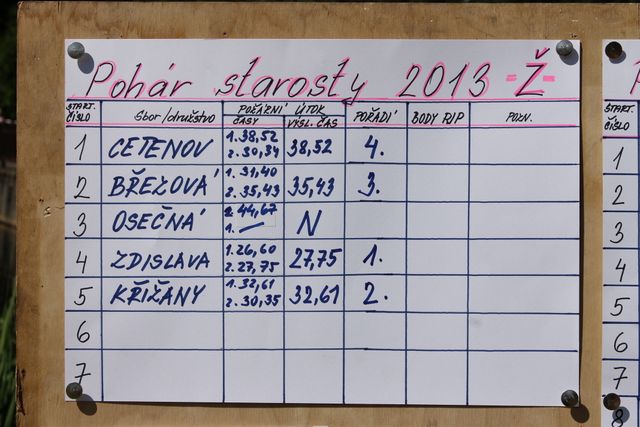 Pohár starosty 2013 -Ž-
START. ČÍSLO Sbor/družstvo POŽÁRNÍ ÚTOK ČASY VÝSL. ČAS POŘADÍ BODY RIP POZN.
1 CETENOV 1. 38,52 2. 30,34 38,52 4.
2 BŘEZOVÁ 1. 31,40 2. 35,43 35,43 3.
3 OSEČNÁ 2. 44,67 1. — N
4 ZDISLAVA 1. 26,60 2. 27,75 27,75 1.
5 KŘIŽANY 1. 32,61 2. 30,35 32,61 2.
6
7
START. ČÍSLO
1
2
3
4
5
6
7
8